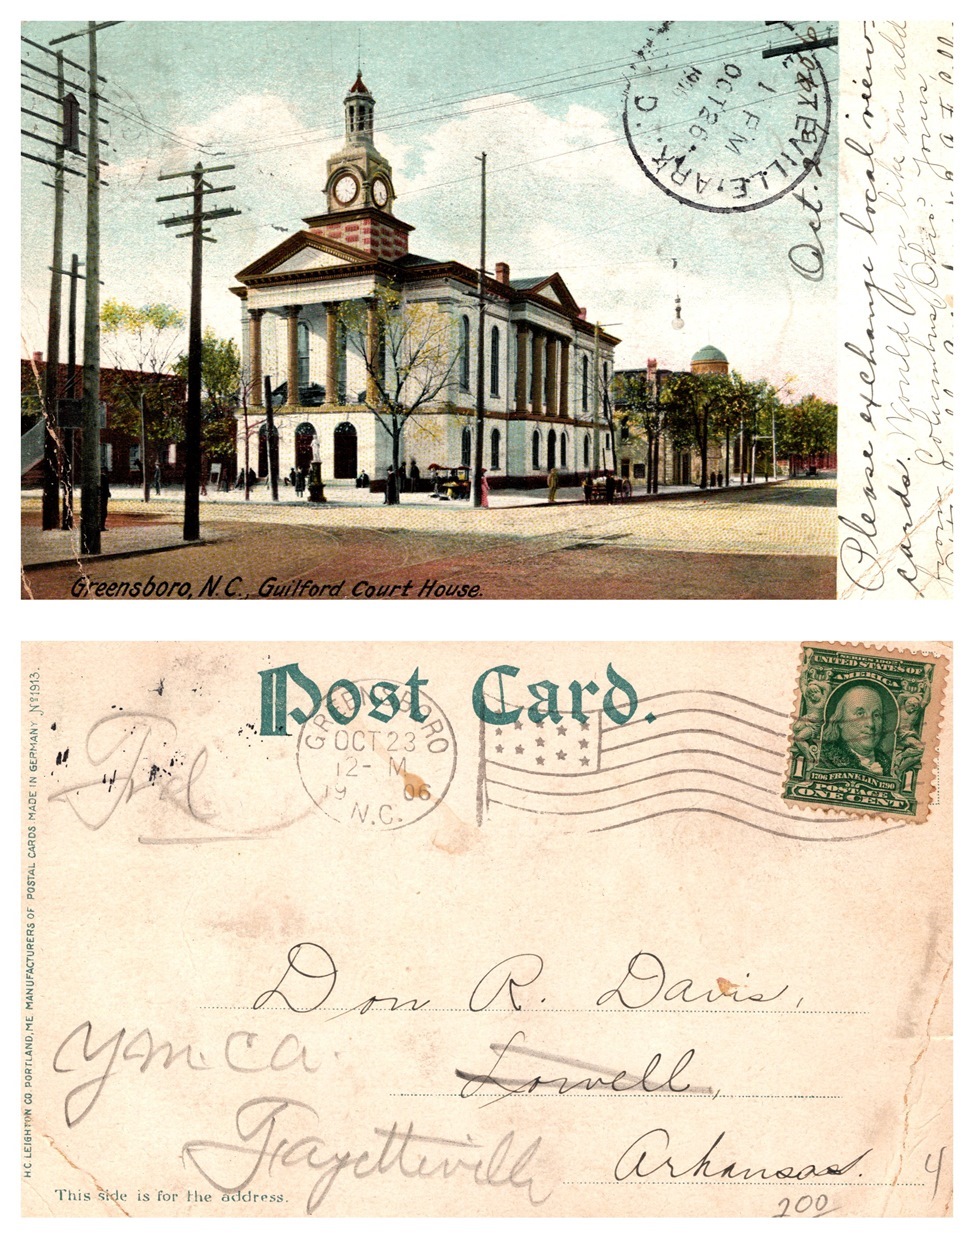 FAYETTEVILLE, ARK. C
OCT 26
1 PM
1906
Oct.
Please exchange local view-
cards. Would you like an add
from Columbus Ohio. Yours
Greensboro, N.C., Guilford Court House.
Post Card.
GREENSBORO
OCT 23
12- M
19 06
N.C.
SERIES 1902
UNITED STATES OF
AMERICA
1706 FRANKLIN 1790
1 POSTAGE 1
ONE CENT
H.C. LEIGHTON CO. PORTLAND, ME. MANUFACTURERS OF POSTAL CARDS. MADE IN GERMANY No 1913.
Don R. Davis,
Y.M.C.A.
Lowell,
Fayetteville
Arkansas.
4
This side is for the address.
200